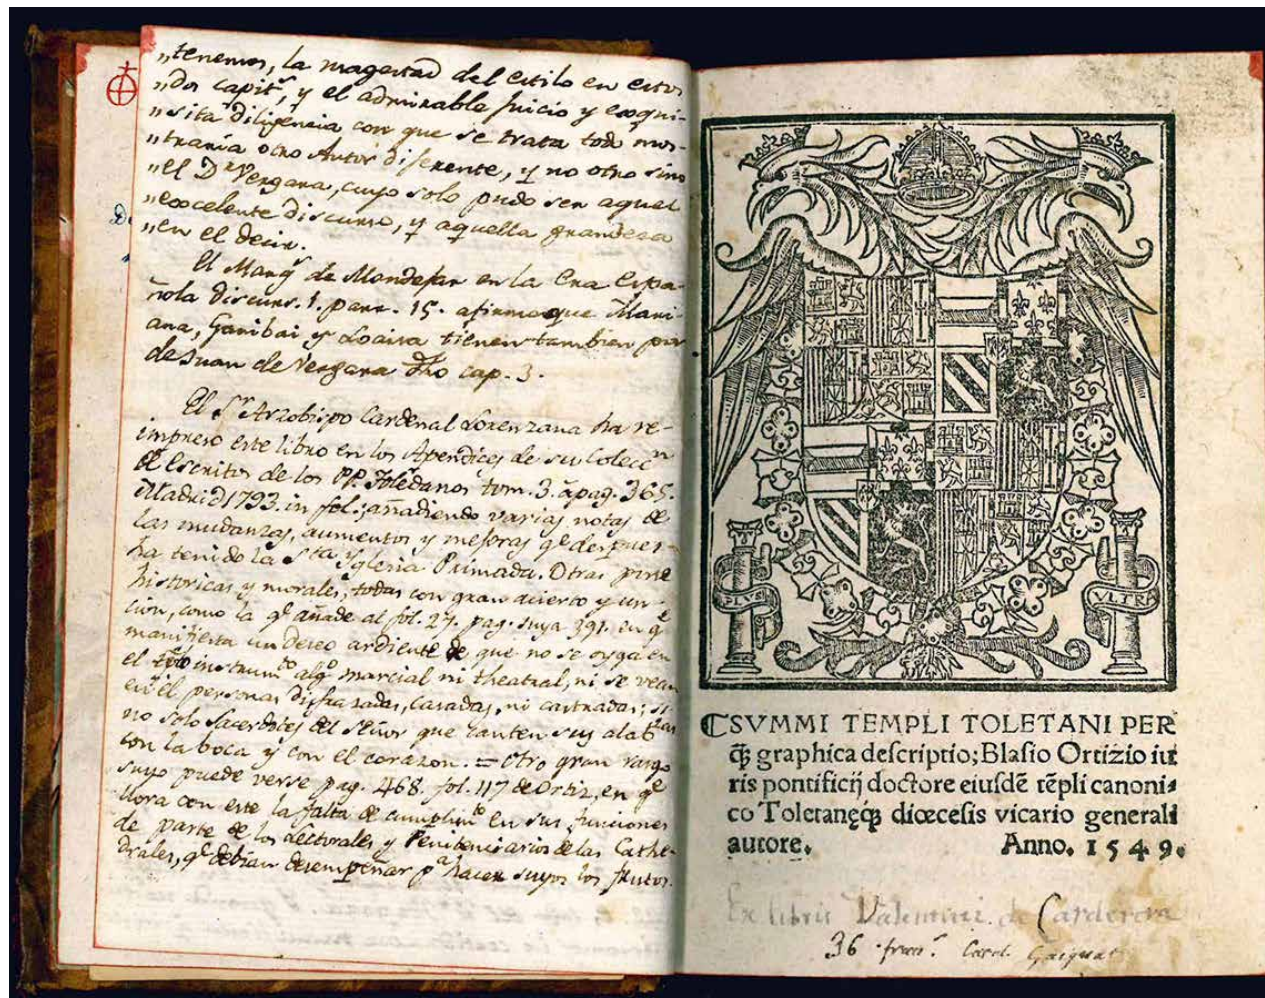 „tenemos, la magestad del estilo en estos
„dos capit.s, y el admirable Juicio y exqui-
„sita diligencia con que se trata todo mos-
„traria otro Autor diferente, y no otro sino
„el D.r Vergara, cuyo solo pudo ser aquel
„excelente discurso, y aquella grandeza
„en el decir.
El Marq.s de Mondejar en la Era Espa-
ñola discurs. 1. parr. 15. afirma que Mari-
ana, Garibai y Loaisa tienen tambien por
de Juan de Vergara dho cap. 3.
El S.r Arzobispo Cardenal Lorenzana ha re-
impreso este libro en los Apendices de su Colecc.n
de Escritos de los PP. Toledanos tom. 3. à pag. 365.
Madrid 1793. in fol.; añadiendo varias notas de
las mudanzas, aumentos y mejoras q.e despues
ha tenido la S.ta Yglesia Primada. Otras pone
historicas y morales, todas con gran acierto y un-
cion, como la q.e añade al fol. 27. pag. suya 391. en q.e
manifiesta un deseo ardiente de que no se oyga en
el instrum.to alg.o marcial ni theatral, ni se vean
en èl personas disfrazadas, casadas, ni castradas; si-
no solo Sacerdotes del Señor que canten sus alab.zas
con la boca y con el corazon. = Otro gran rasgo
suyo puede verse pag. 468. fol. 117 de Ortiz, en q.e
llora con este la falta de cumplim.to en sus funciones
de parte de los Lectorales y Penitenciarios de las Cathe-
drales, q.e debian desempeñar p.a hacer suyos los frutos.
PLVS
VLTRA
SVMMI TEMPLI TOLETANI PER
q̃ꝫ graphica descriptio; Blasio Ortizio iu
ris pontificij doctore eiusdẽ tẽpli canoni-
co Toletanęqꝫ diœcesis vicario generali
autore. Anno. 1549.
Ex libris Valentini de Carderera
36